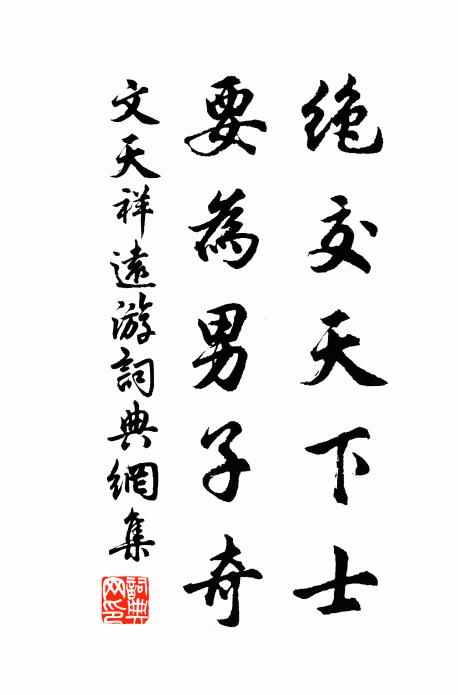 絶交天下士
要為男子奇
文天祥遠游詞典網集
詞典网印